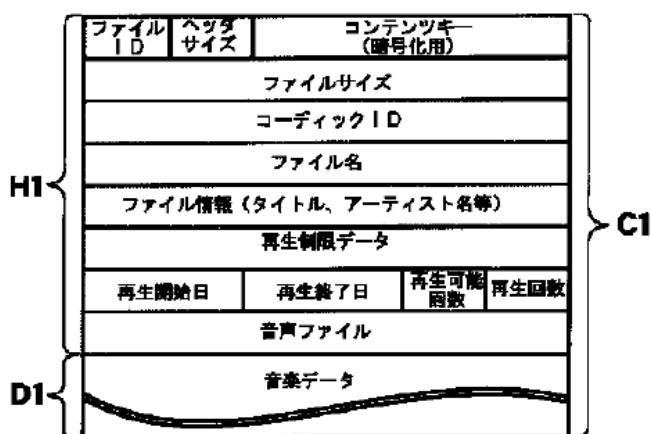 ファイル ID
ヘッダ サイズ
コンテンツキー
(暗号化用)
ファイルサイズ
コーディックID
ファイル名
H1
ファイル情報(タイトル、アーティスト名等)
C1
再生制限データ
再生開始日
再生終了日
再生可能 回数
再生回数
音声ファイル
D1
音楽データ